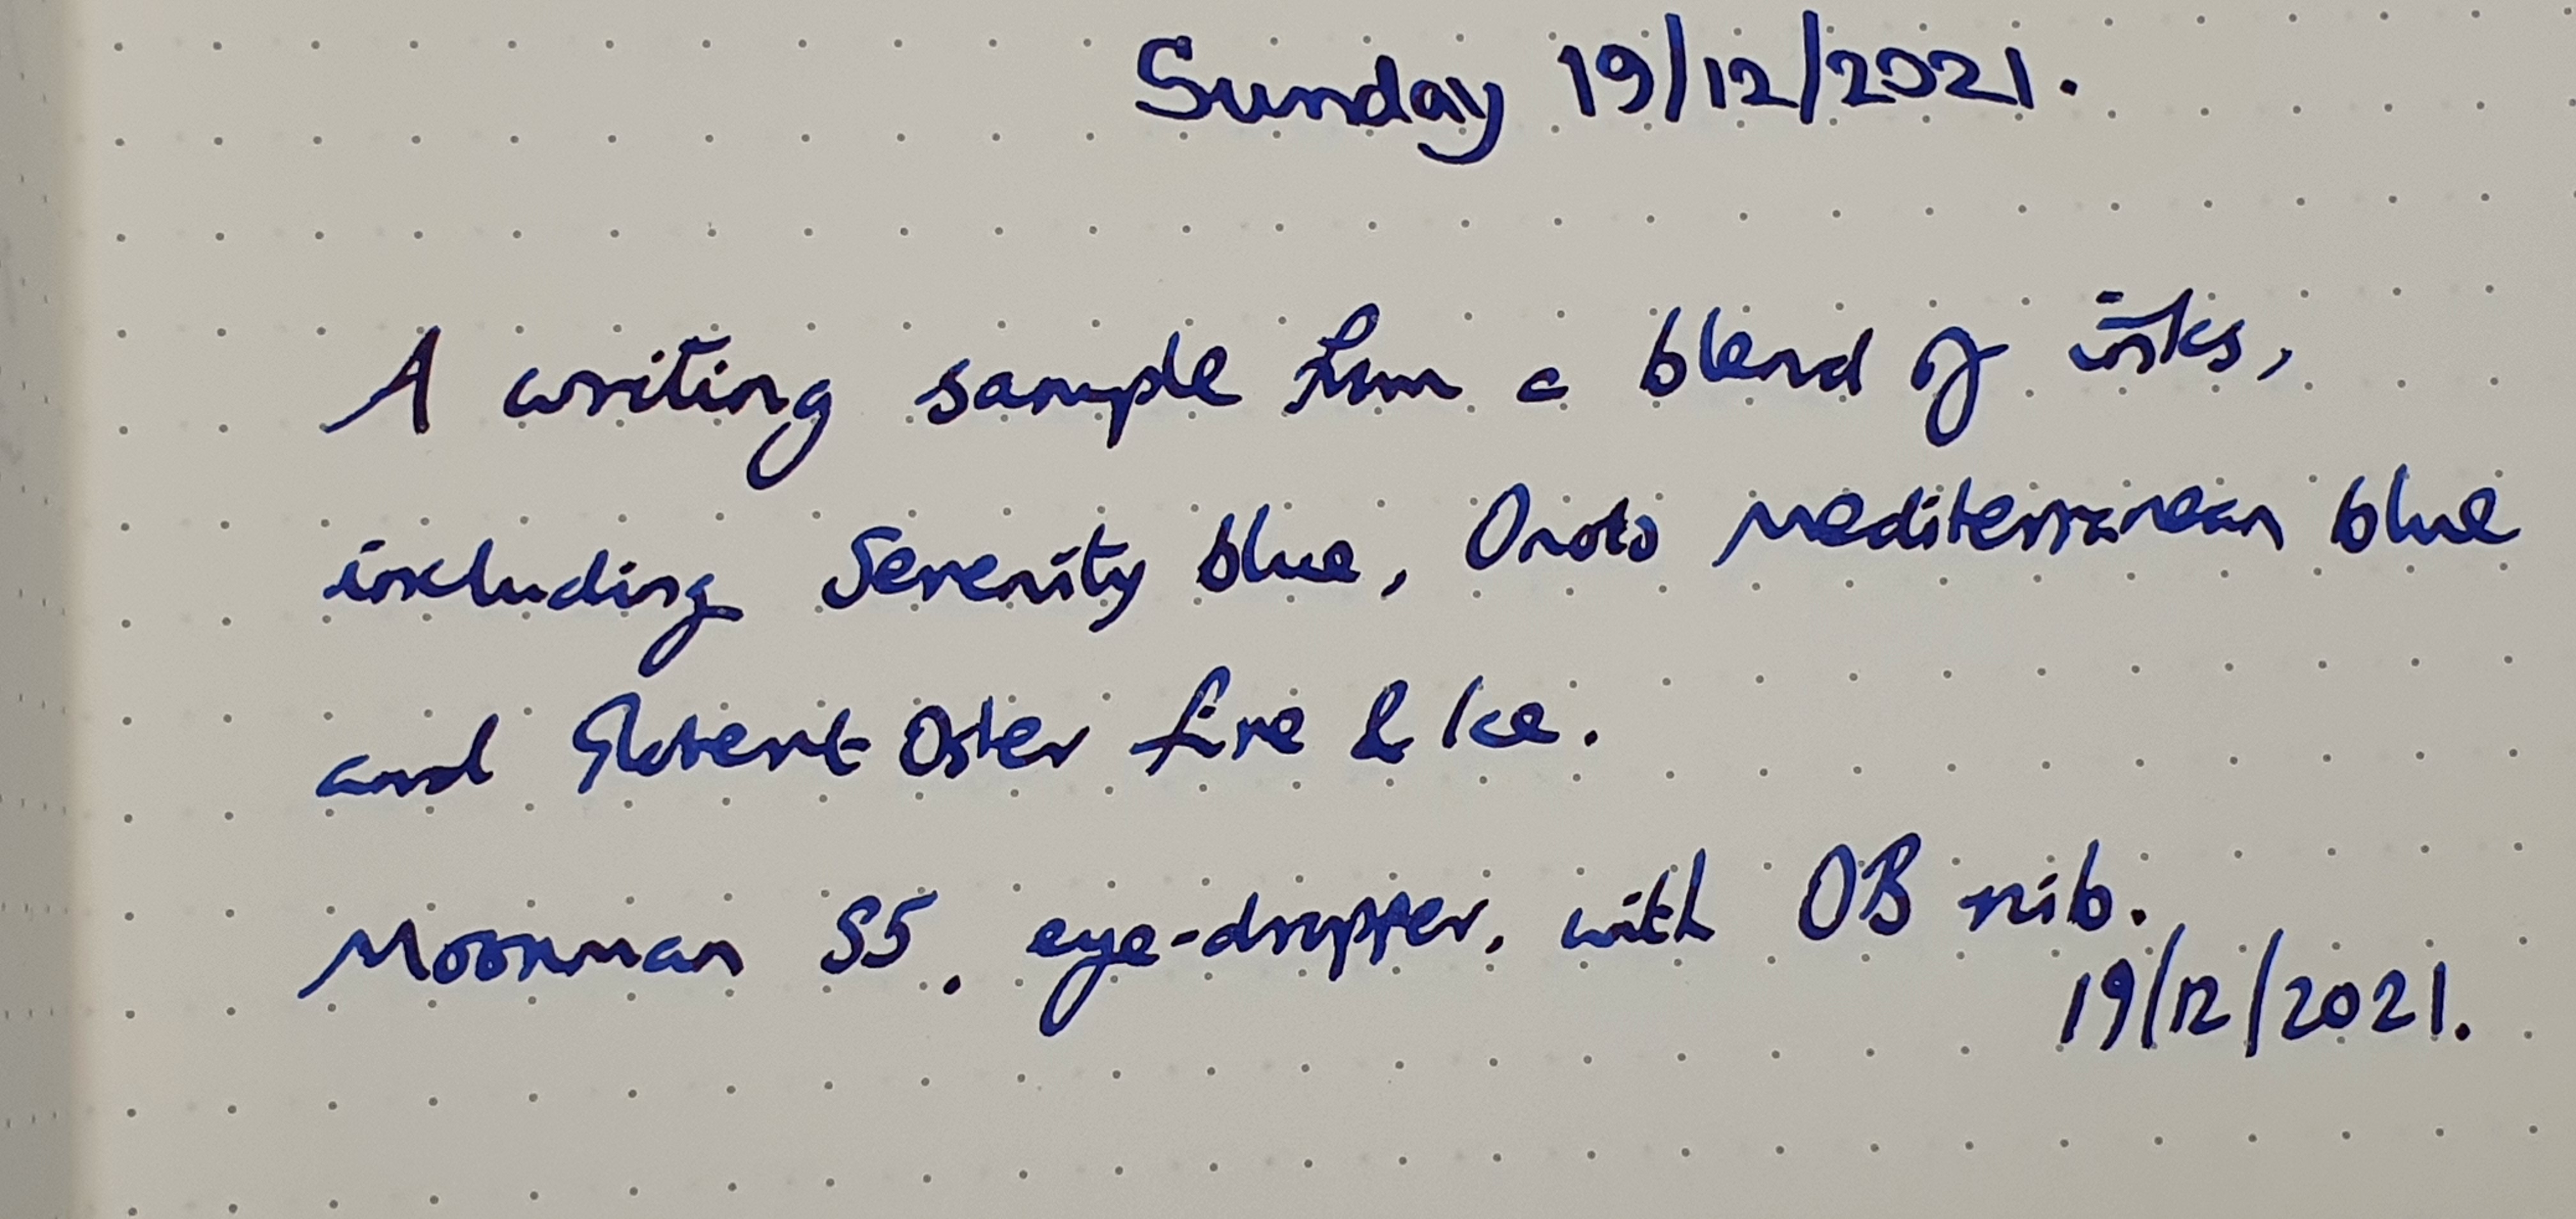 Sunday 19/12/2021.
A writing sample from a blend of inks,
including Serenity blue, Onoto Mediterranean blue
and Robert Oster fire & Ice.
Moonman S5. eye-dropper, with OB nib.
19/12/2021.